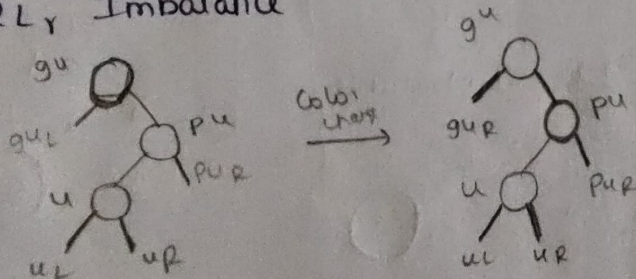 RLr Imbalance
gu
guL
pu
puR
u
uL
uR
Color
change
gu
guR
pu
puR
u
uL
uR